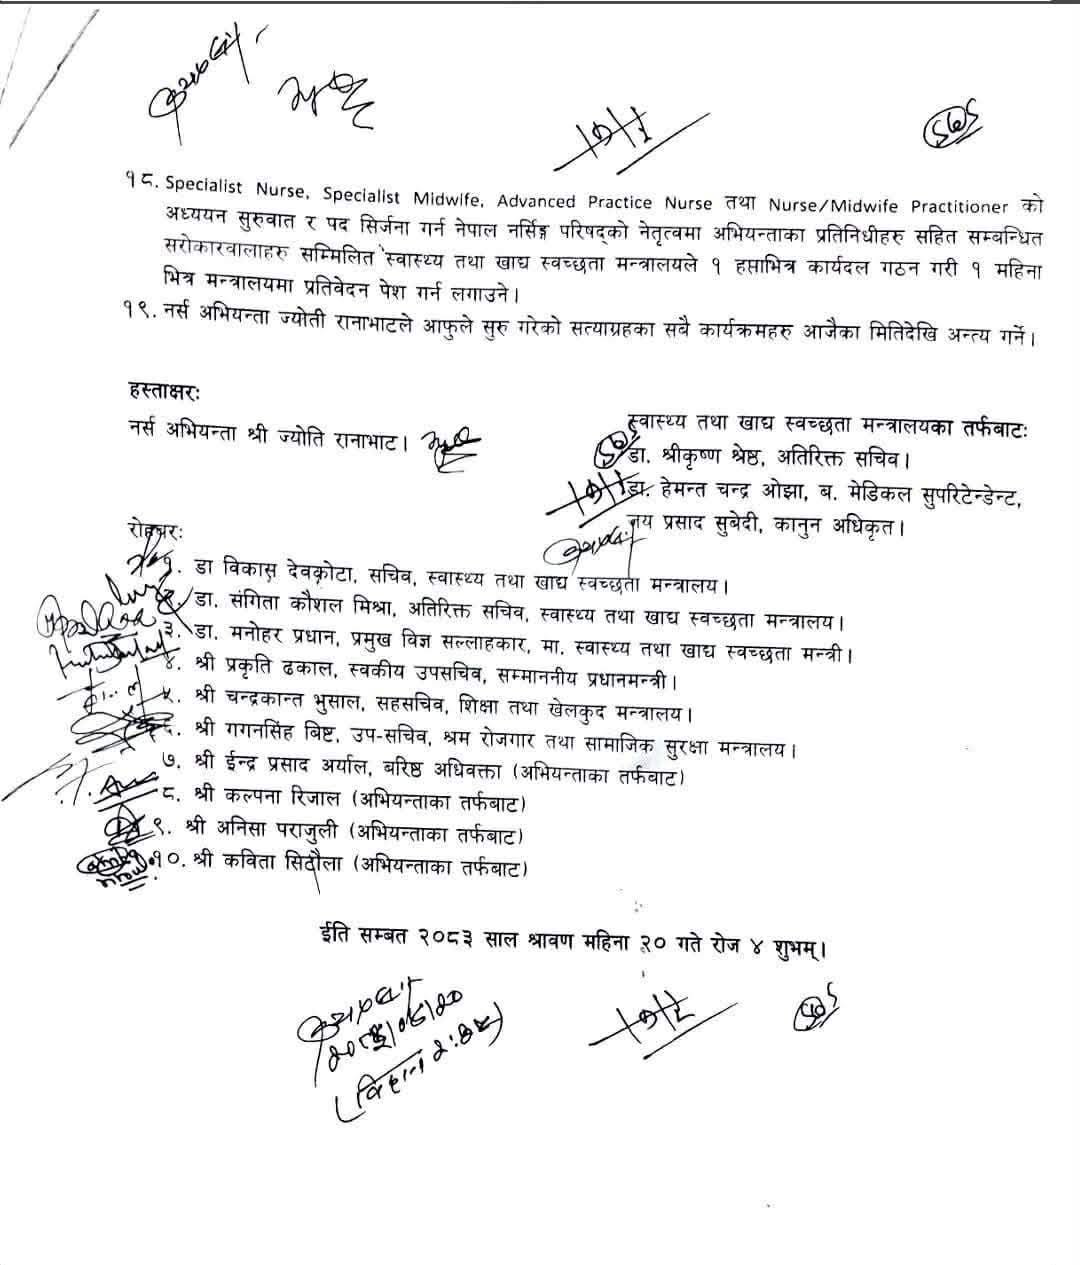 १८. Specialist Nurse, Specialist Midwife, Advanced Practice Nurse तथा Nurse/Midwife Practitioner को
अध्ययन सुरुवात र पद सिर्जना गर्न नेपाल नर्सिङ्ग परिषद्को नेतृत्वमा अभियन्ताका प्रतिनिधीहरु सहित सम्बन्धित
सरोकारवालाहरु सम्मिलित स्वास्थ्य तथा खाद्य स्वच्छता मन्त्रालयले १ हप्ताभित्र कार्यदल गठन गरी १ महिना
भित्र मन्त्रालयमा प्रतिवेदन पेश गर्न लगाउने।
१९. नर्स अभियन्ता ज्योती रानाभाटले आफुले सुरु गरेको सत्याग्रहका सबै कार्यक्रमहरु आजैका मितिदेखि अन्त्य गर्ने।
हस्ताक्षरः
नर्स अभियन्ता श्री ज्योति रानाभाट।
स्वास्थ्य तथा खाद्य स्वच्छता मन्त्रालयका तर्फबाटः
डा. श्रीकृष्ण श्रेष्ठ, अतिरिक्त सचिव।
डा. हेमन्त चन्द्र ओझा, ब. मेडिकल सुपरिटेन्डेन्ट,
जय प्रसाद सुबेदी, कानुन अधिकृत।
रोहबरः
१. डा विकास देवकोटा, सचिव, स्वास्थ्य तथा खाद्य स्वच्छता मन्त्रालय।
२. डा. संगिता कौशल मिश्रा, अतिरिक्त सचिव, स्वास्थ्य तथा खाद्य स्वच्छता मन्त्रालय।
३. डा. मनोहर प्रधान, प्रमुख विज्ञ सल्लाहकार, मा. स्वास्थ्य तथा खाद्य स्वच्छता मन्त्री।
४. श्री प्रकृति ढकाल, स्वकीय उपसचिव, सम्माननीय प्रधानमन्त्री।
५. श्री चन्द्रकान्त भुसाल, सहसचिव, शिक्षा तथा खेलकुद मन्त्रालय।
६. श्री गगनसिंह बिष्ट, उप-सचिव, श्रम रोजगार तथा सामाजिक सुरक्षा मन्त्रालय।
७. श्री ईन्द्र प्रसाद अर्याल, बरिष्ठ अधिवक्ता (अभियन्ताका तर्फबाट)
८. श्री कल्पना रिजाल (अभियन्ताका तर्फबाट)
९. श्री अनिसा पराजुली (अभियन्ताका तर्फबाट)
१०. श्री कविता सिटौला (अभियन्ताका तर्फबाट)
ईति सम्बत २०८३ साल श्रावण महिना २० गते रोज ४ शुभम्।